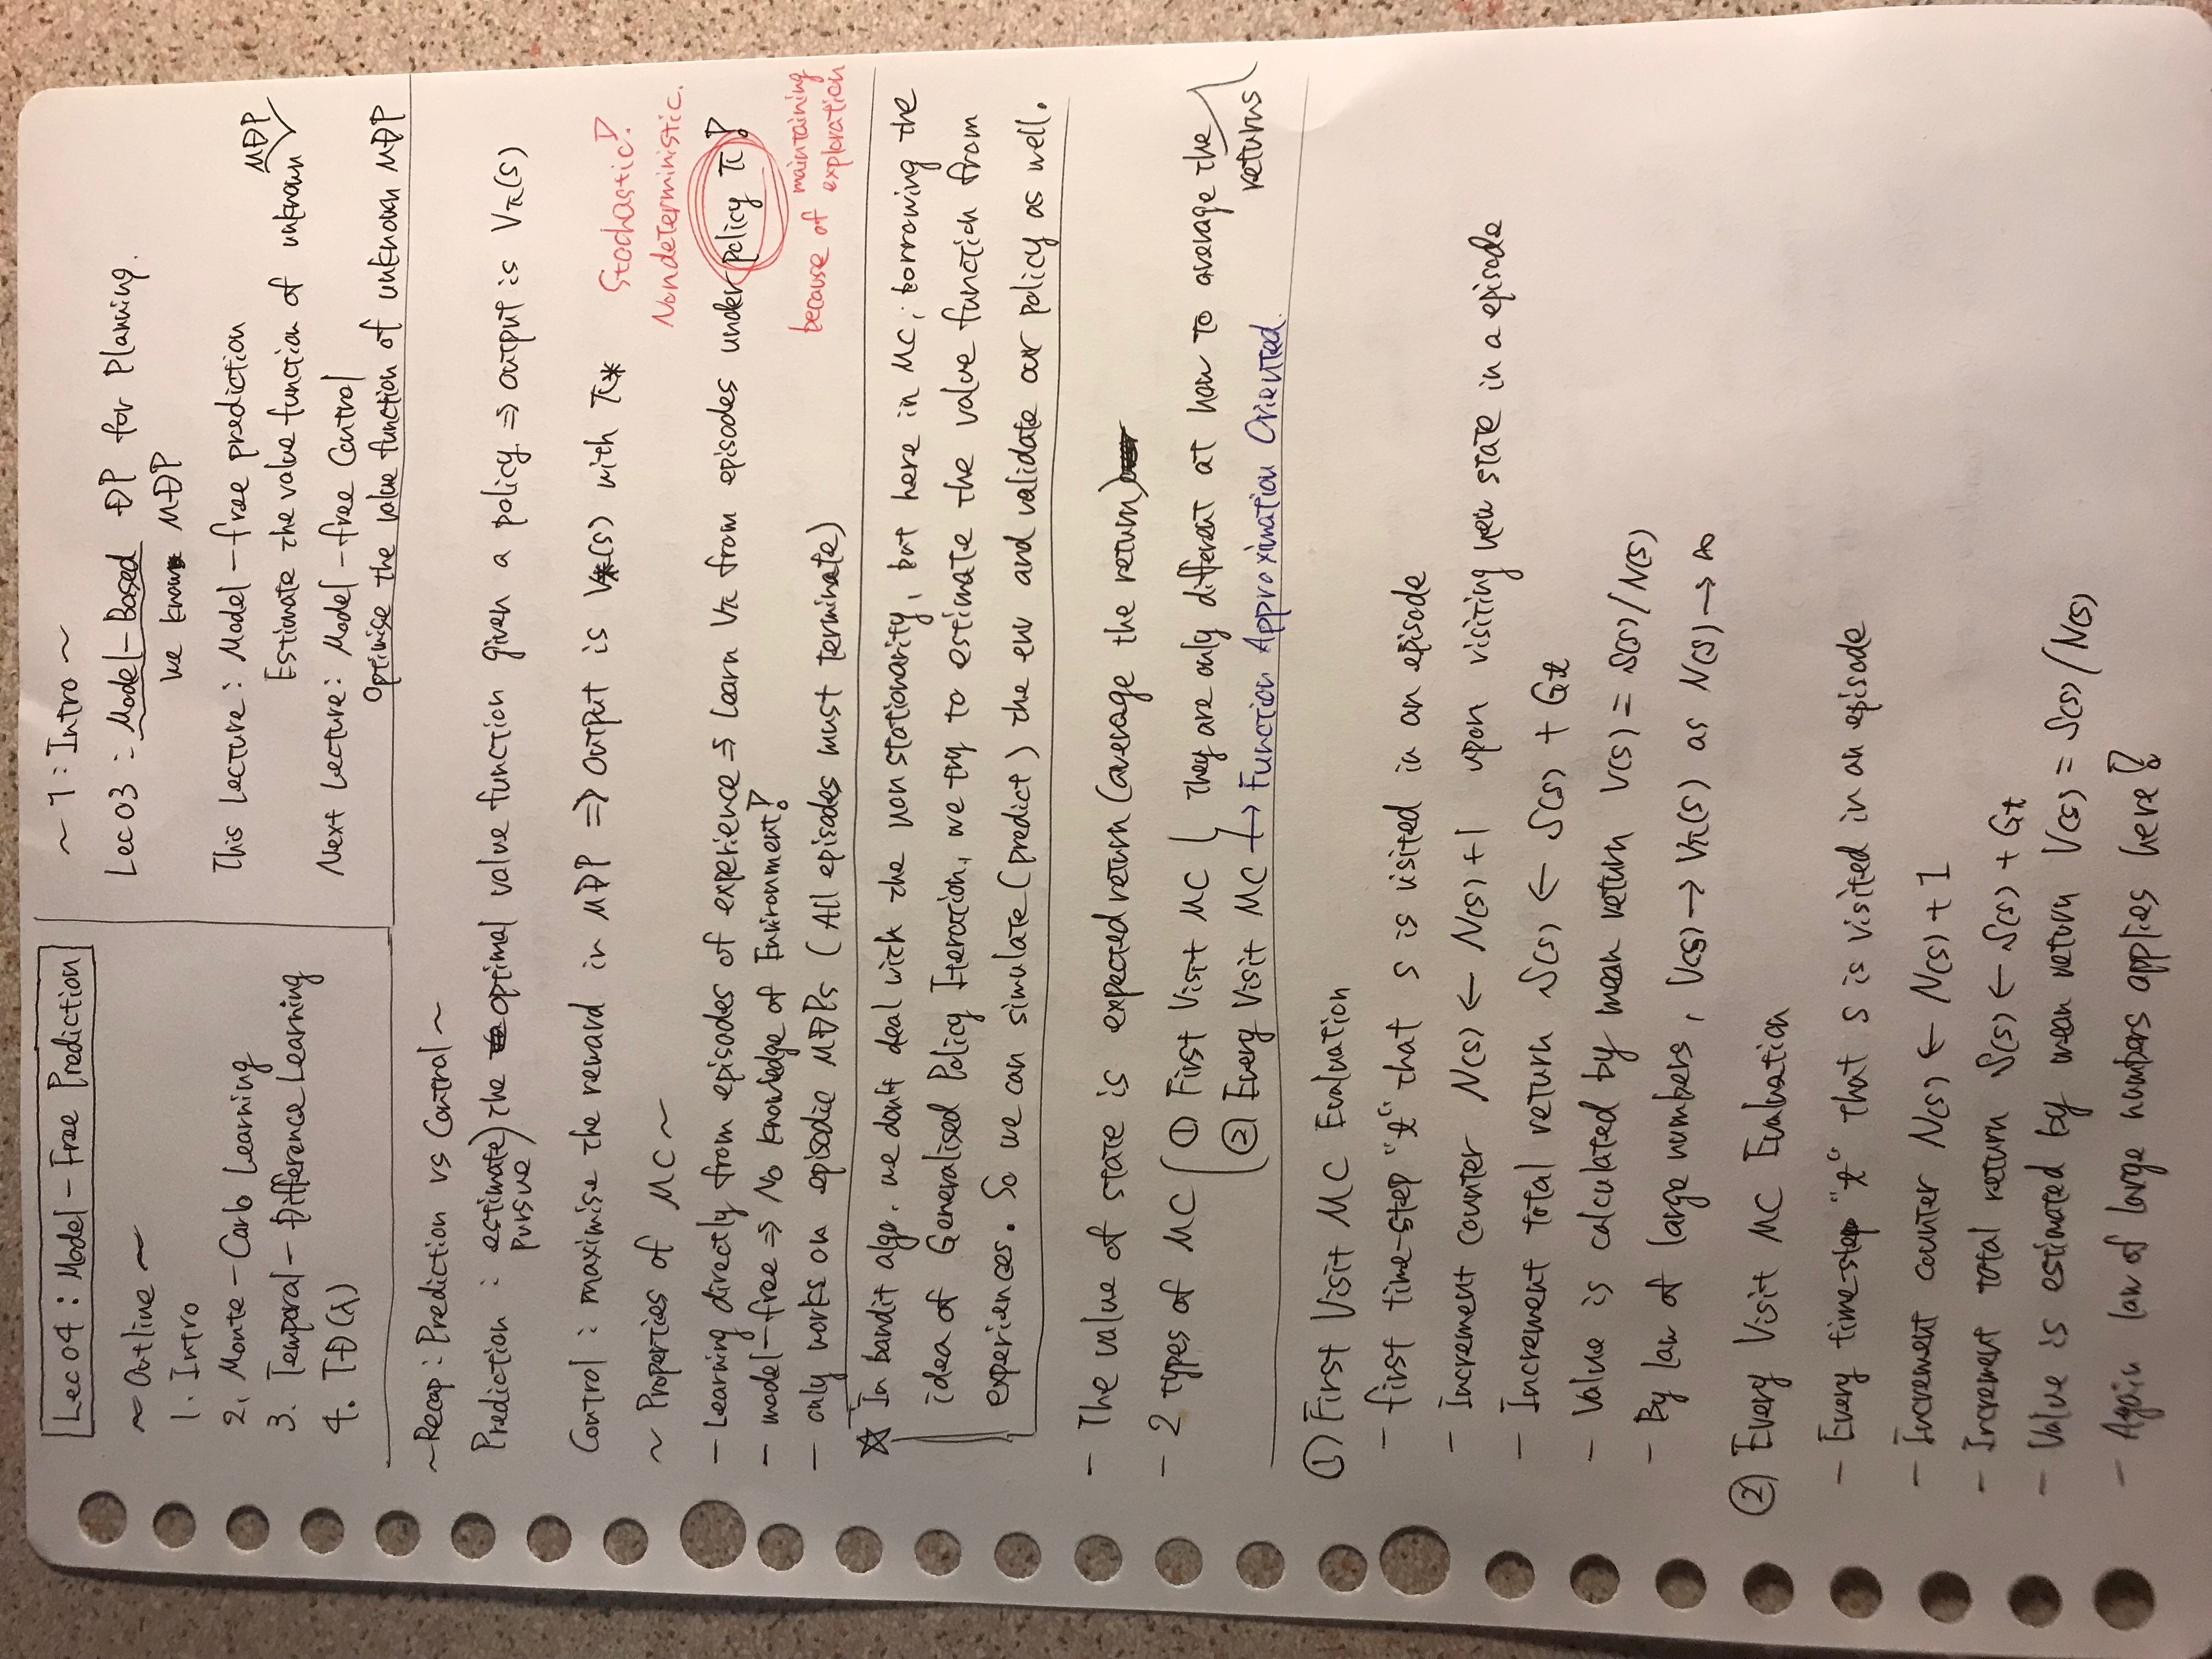 Lec 04 : Model-Free Prediction
~ Outline ~
1. Intro
2. Monte-Carlo Learning
3. Temporal-Difference Learning
4. TD(λ)
~ 1 : Intro ~
Lec 03 : Model-Based DP for Planning.
we know MDP
This Lecture : Model-free prediction
Estimate the value function of unknown MDP
Next Lecture : Model-free Control
Optimise the value function of unknown MDP
~Recap : Prediction vs Control~
Prediction : estimate) the optimal value function given a policy ⇒ output is Vπ(s)
pursue
Control : maximise the reward in MDP ⇒ output is V*(s) with π*
~ Properties of MC ~
Stochastic!
Nondeterministic.
- Learning directly from episodes of experience ⇒ Learn Vπ from episodes under policy π!
- model-free ⇒ No knowledge of Environment!
- only works on episodic MDPs (All episodes must terminate)
because of maintaining
exploration
☆ In bandit algo. we don't deal with the nonstationarity, but here in MC, borrowing the
idea of Generalised Policy Iteration, we try to estimate the value function from
experiences. So we can simulate (predict) the env and validate our policy as well.
- The value of state is expected return (average the return)
- 2 types of MC ( ① First Visit MC | They are only different at how to average the
returns
② Every Visit MC → Function Approximation Oriented.
① First Visit MC Evaluation
- first time-step "t" that s is visited in an episode
- Increment counter N(s) ← N(s) + 1 upon visiting new state in a episode
- Increment total return S(s) ← S(s) + Gt
- Value is calculated by mean return V(s) = S(s) / N(s)
- By law of large numbers, V(s) → Vπ(s) as N(s) → ∞
② Every Visit MC Evaluation
- Every time-step "t" that s is visited in an episode
- Increment counter N(s) ← N(s) + 1
- Increment total return S(s) ← S(s) + Gt
- Value is estimated by mean return V(s) = S(s) / N(s)
- Again law of large numbers applies here!